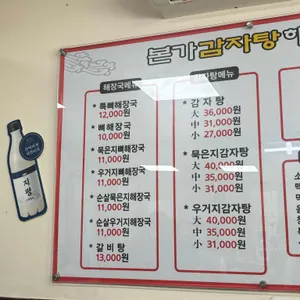 본가감자탕해
해장국메뉴
* 특뼈해장국
12,000원
* 뼈해장국
10,000원
* 묵은지뼈해장국
11,000원
* 우거지뼈해장국
11,000원
* 순살묵은지해장국
11,000원
* 순살우거지해장국
11,000원
* 갈비탕
13,000원
감자탕메뉴
* 감자탕
大 36,000원
中 31,000원
小 27,000원
* 묵은지감자탕
大 40,000원
中 35,000원
小 31,000원
* 우거지감자탕
大 40,000원
中 35,000원
小 31,000원
지평